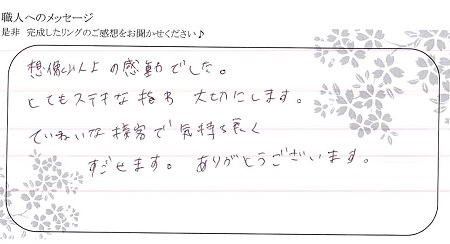 職人へのメッセージ
是非 完成したリングのご感想をお聞かせください♪
想像以上の感動でした。
とてもステキな指わ 大切にします。
ていねいな接客で気持ち良く
すごせます。 ありがとうございます。